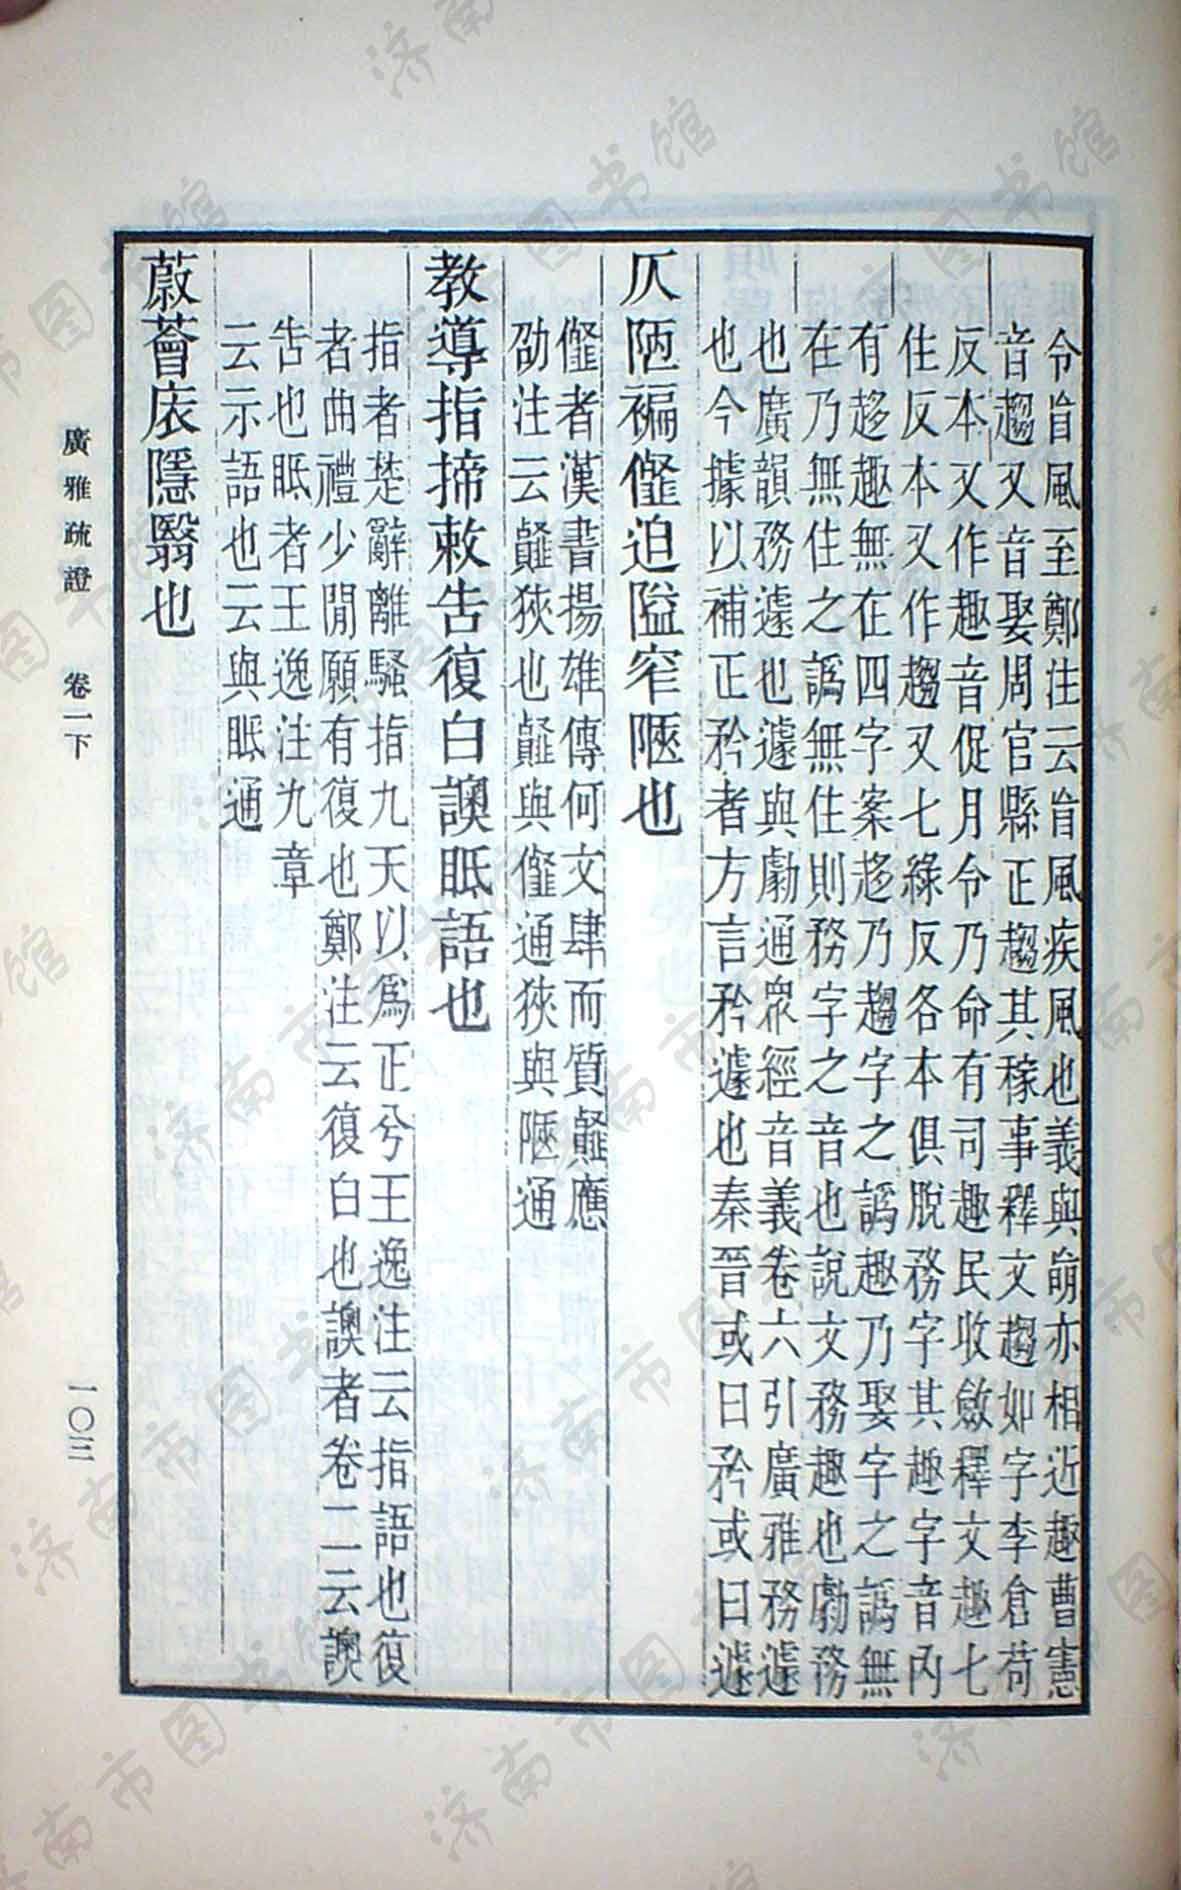 令盲風至鄭注云盲風疾風也義與䓝亦相近趣曹憲
音趨又音娶周官縣正趨其稼事釋文趨如字李倉苟
反本又作趣音促月令乃命有司趣民收斂釋文趣七
住反本又作趨又七綠反各本俱脫務字其趣字音內
有趍趣無在四字案趍乃趨字之譌趣乃娶字之譌無
在乃無住之譌無住則務字之音也說文務趣也勮務
也廣韻務遽也遽與勮通眾經音義卷六引廣雅務遽
也今據以補正矜者方言矜遽也秦晉或曰矜或曰遽
仄陋褊㒠迫隘窄陿也
㒠者漢書揚雄傳何文肆而質䪥應
劭注云䪥狹也䪥與㒠通狹與陿通
教導指揥敕告復白謏眡語也
指者楚辭離騷指九天以爲正兮王逸注云指語也復
者曲禮少閒願有復也鄭注云復白也謏者卷二云謏
告也眡者王逸注九章
云示語也云與眡通
蔚薈庡隱翳也
廣雅疏證　卷二下
一〇三
济南市图书馆